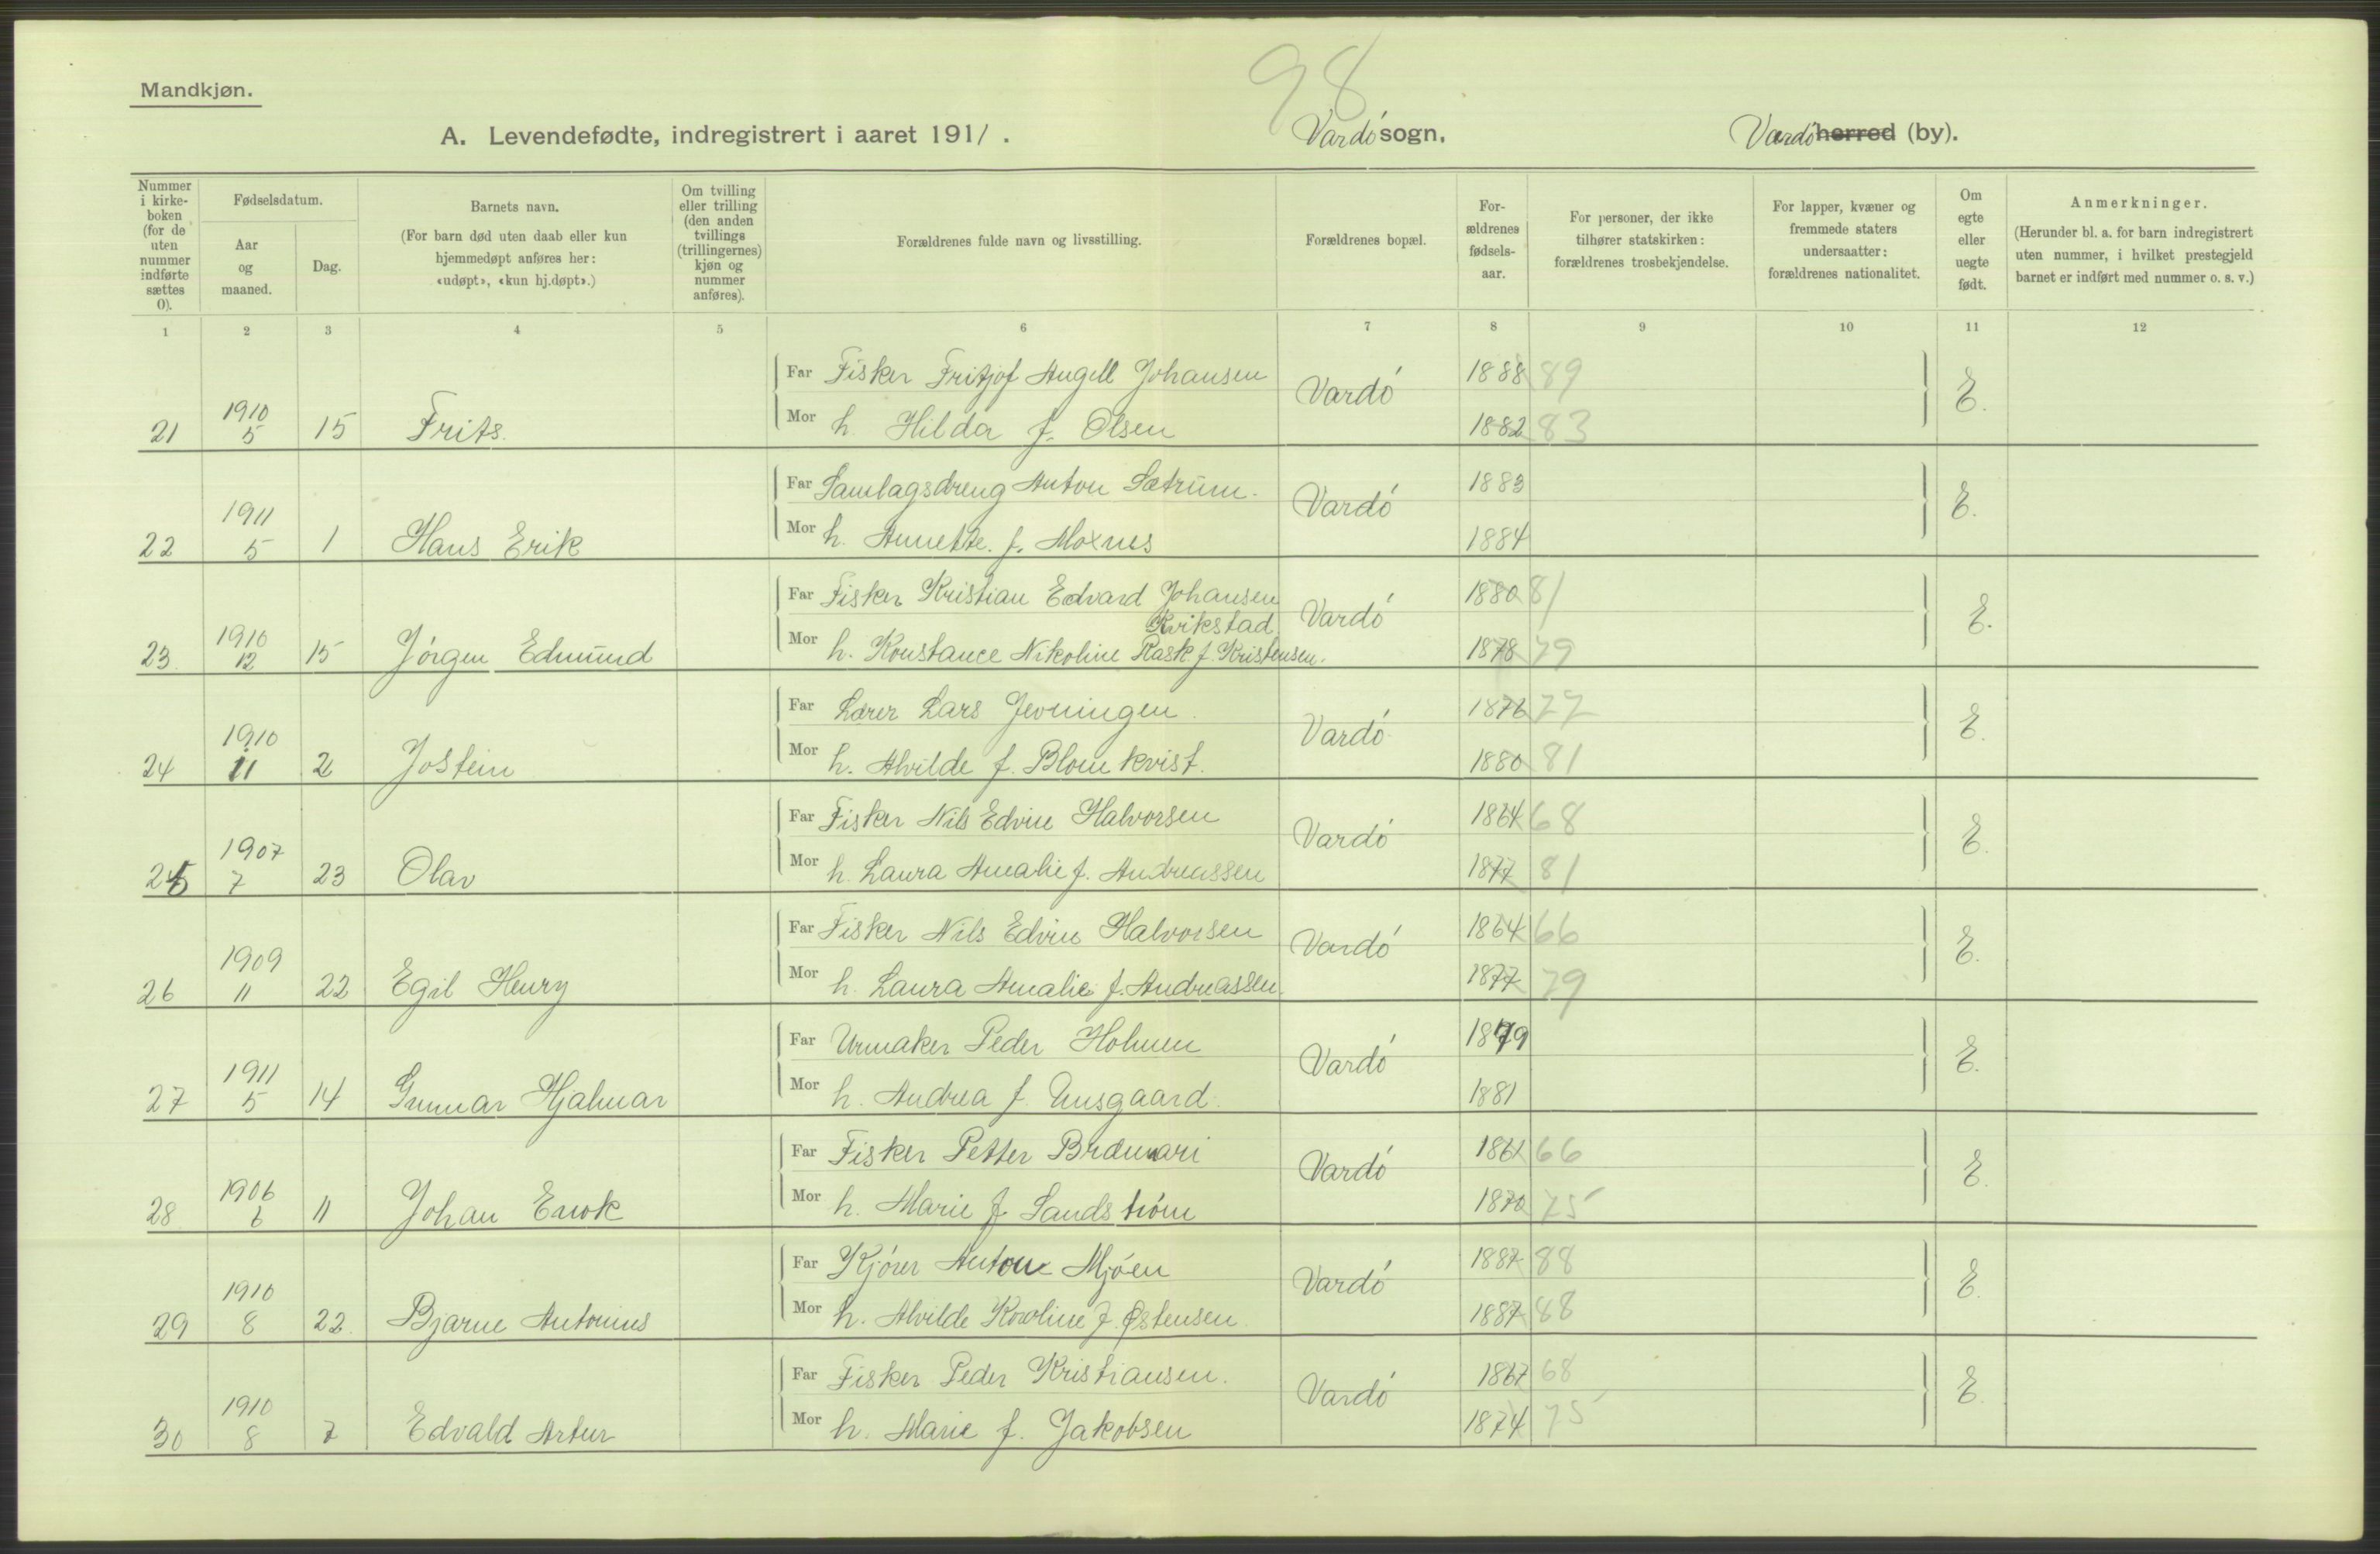 98
Mandkjøn.
A. Levendefødte, indregistrert i aaret 1911. Vardö sogn, Vardö herred (by).
Nummer i kirkeboken (for de uten nummer indførte sættes 0).
Fødselsdatum.
Aar og maaned.
Dag.
Barnets navn.
(For barn død uten daab eller kun hjemmedøpt anføres her: «udøpt», «kun hj.døpt».)
Om tvilling eller trilling (den anden tvillings (trillingernes) kjøn og nummer anføres).
Forældrenes fulde navn og livsstilling.
Forældrenes bopæl.
Forældrenes fødselsaar.
For personer, der ikke tilhører statskirken: forældrenes trosbekjendelse.
For lapper, kvæner og fremmede staters undersaatter: forældrenes nationalitet.
Om egte eller uegte født.
Anmerkninger.
(Herunder bl. a. for barn indregistrert uten nummer, i hvilket prestegjeld barnet er indført med nummer o. s. v.)
1 2 3 4 5 6 7 8 9 10 11 12
Far Fisker Fritjof Angell Johansen Vardö 1888 89 E.
21 1910 5 15 Frits. Mor h. Hilda f. Olsen 1882 83
Far Samlagsdreng Anton Sætrum. Vardö 1883 E.
22 1911 5 1 Hans Erik Mor h. Annette. f. Moxnes 1884
Far Fisker Kristian Edvard Johansen Kvikstad Vardö 1880 81 E.
23. 1910 12 15 Jörgen Edmund Mor h. Konstance Nikoline Rask f. Kristensen. 1878 79
Far Lærer Lars Jevningen. Vardö 1876 77 E.
24 1910 11 2 Jostein Mor h. Alvilde f. Blomkvist. 1880 81
Far Fisker Nils Edvin Halvorsen Vardö 1864 68 E.
25 1907 7 23 Olav Mor h. Laura Amalie f. Andreassen 1877 81
Far Fisker Nils Edvin Halvorsen Vardö 1864 66 E.
26 1909 11 22 Egil Henry Mor h. Laura Amalie f. Andreassen 1877 79
Far Urmaker Peder Holmen Vardö 1879 E.
27 1911 5 14 Gunnar Hjalmar Mor h. Andrea f. Unsgaard. 1881
Far Fisker Petter Brænnari Vardö 1861 66 E.
28 1906 6 11 Johan Enok Mor h. Marie f. Sandström 1870 75
Far Kjörer Anton Mjöen Vardö 1887 88 E.
29 1910 8 22. Bjarne Antonius Mor h. Alvilde Karoline f. Östensen 1887 88
Far Fisker Peder Kristiansen. Vardö 1867 68 E.
30 1910 8 7 Edvald Artur Mor h. Marie f. Jakobsen 1874 75